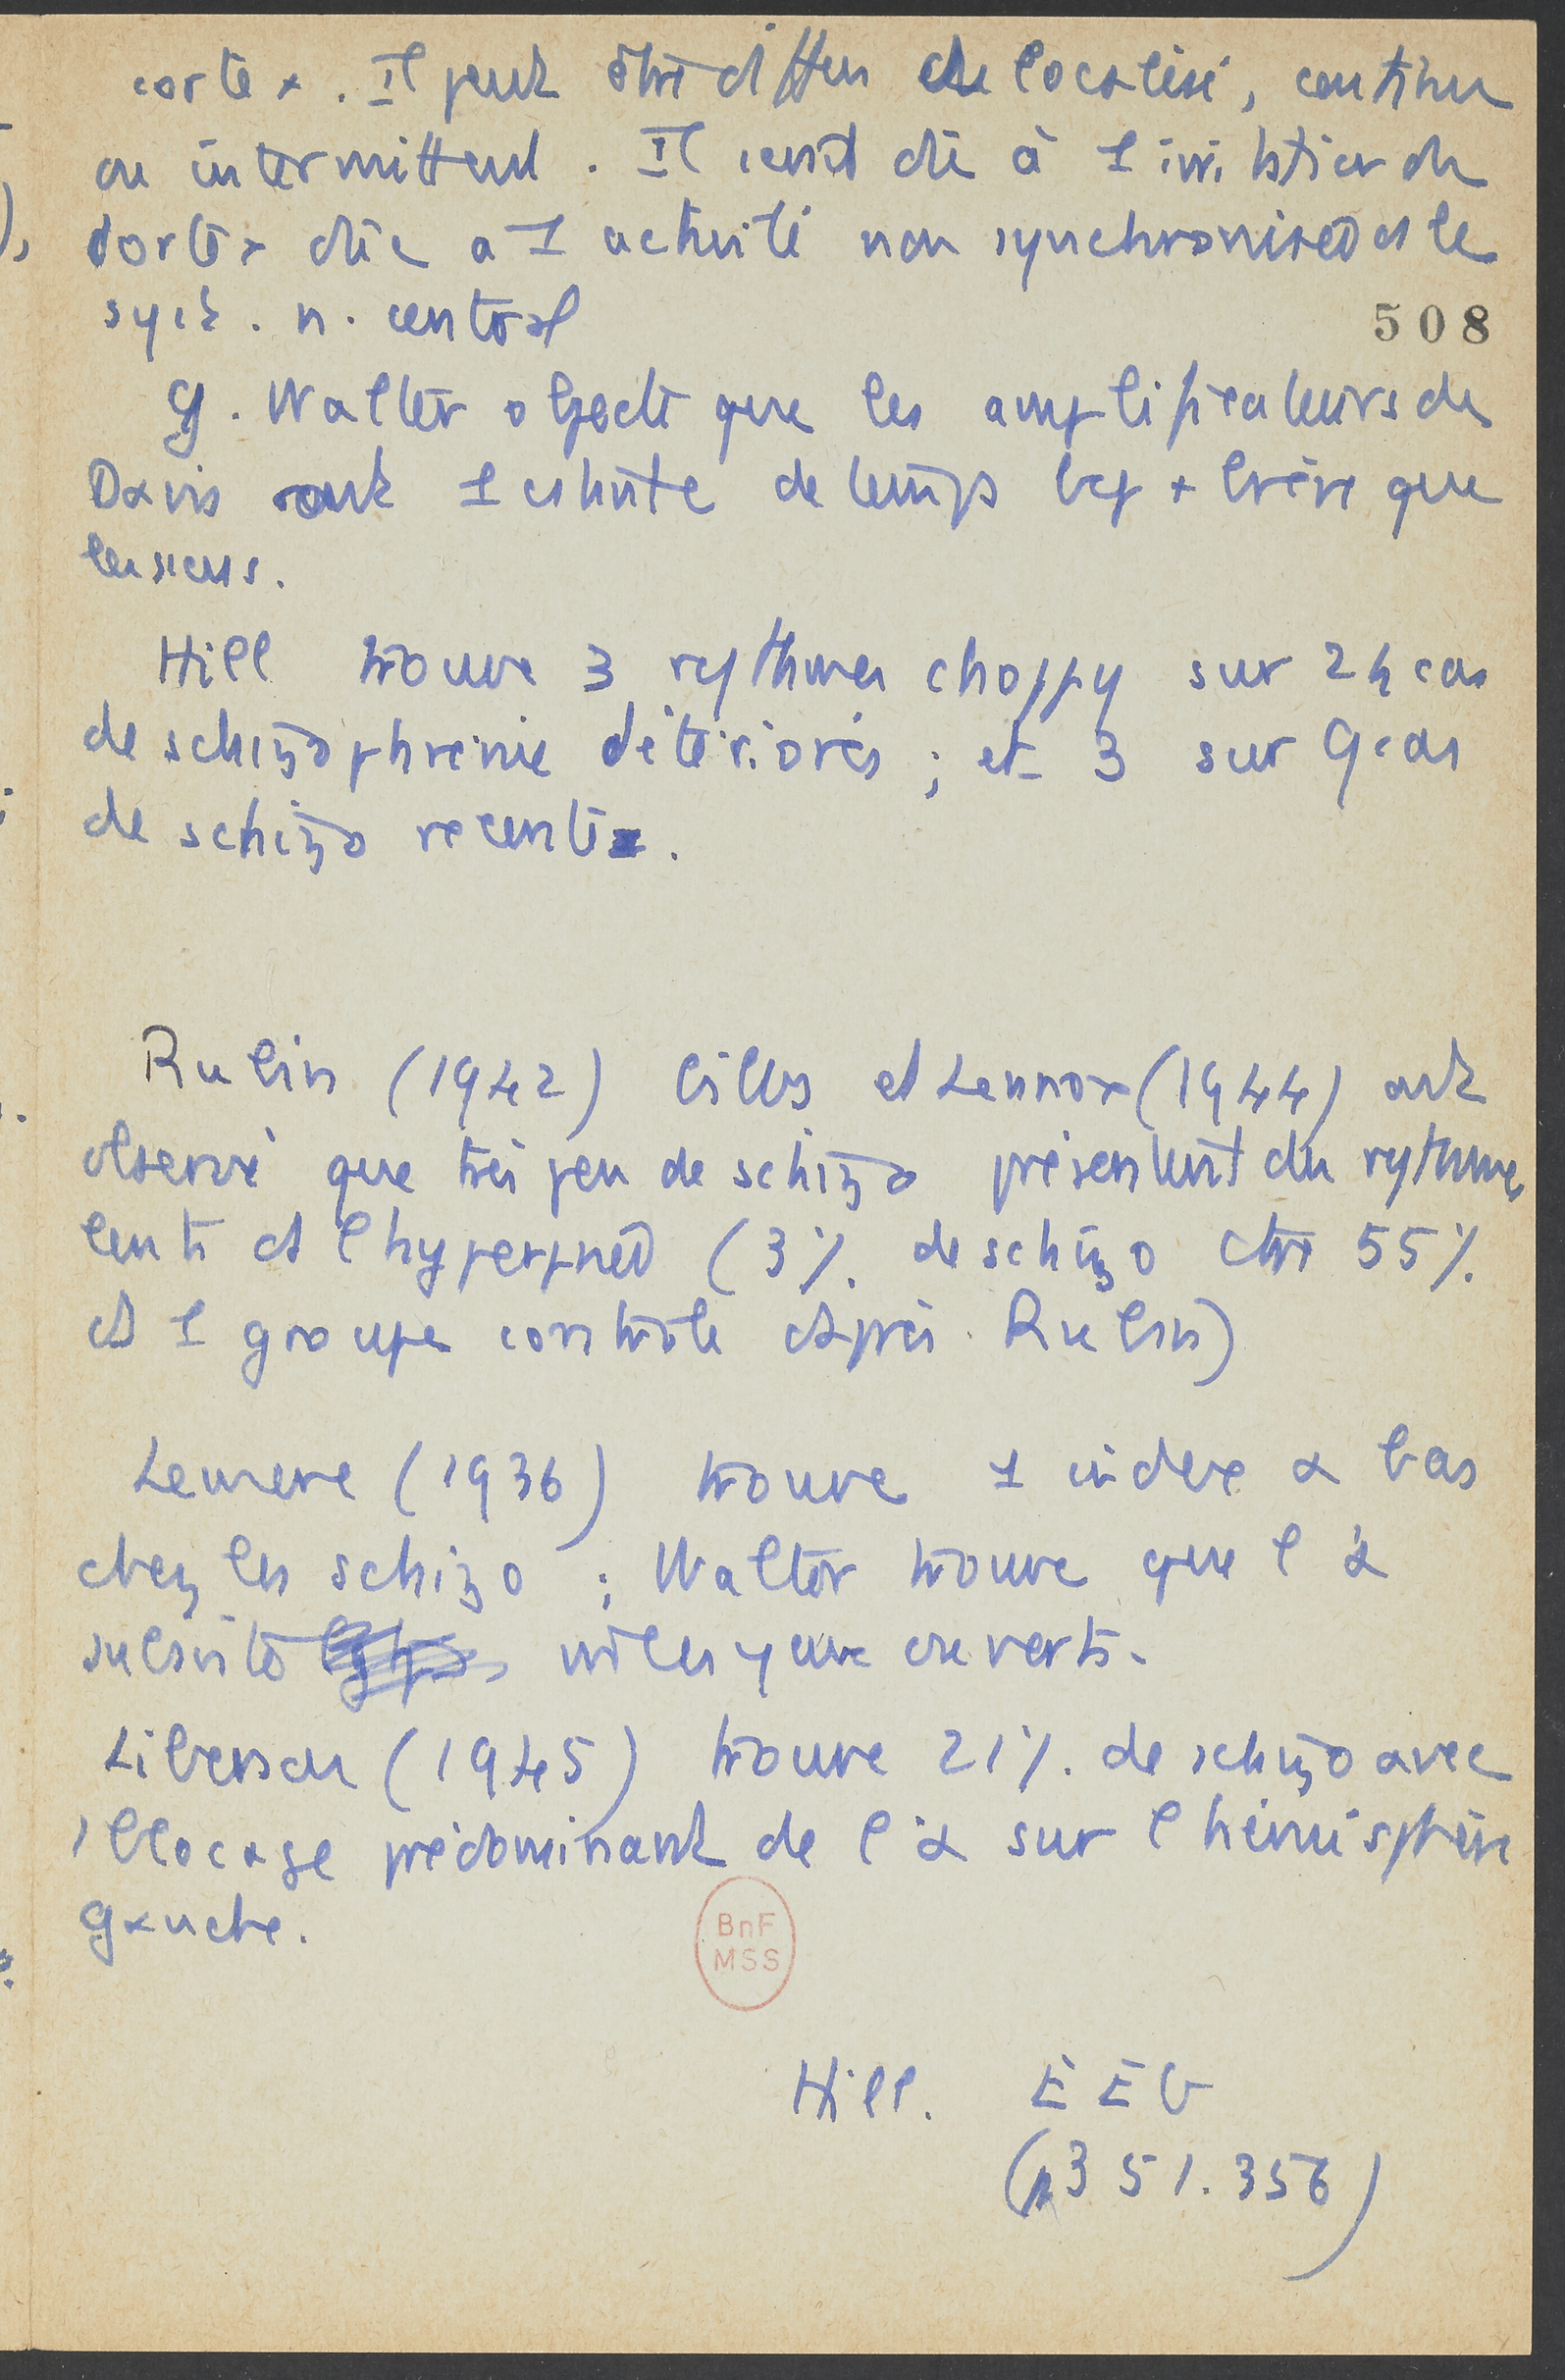 cortex. Il peut être diffus ou localisé, continu
ou intermittent. Il serait dû à 1 irritation du
cortex dûe a 1 activité non synchronisée ds le
syst. n. central
508
G. Walter objecte que les amplificateurs de
Davis ont 1 cstante de temps bcp + brève que
les siens.
Hill trouve 3 rythmes choppy sur 24 cas
de schizophrénie détériorés ; et 3 sur 9 cas
de schizo recents.
Rubin (1942) Gibbs et Lennox (1944) ont
observé que très peu de schizo présentent du rythme
lent ds l'hyperpnée (3% de schizo ctre 55%
ds 1 groupe contrôle d'après Rubin)
Lemere (1936) trouve 1 index α bas
chez les schizo ; Walter trouve que l'α
subsiste les yeux ouverts.
Liberson (1945) trouve 21% de schizo avec
1 blocage prédominant de l'α sur l'hémisphère
gauche.
BnF
MSS
Hill. EEG
(351.356)